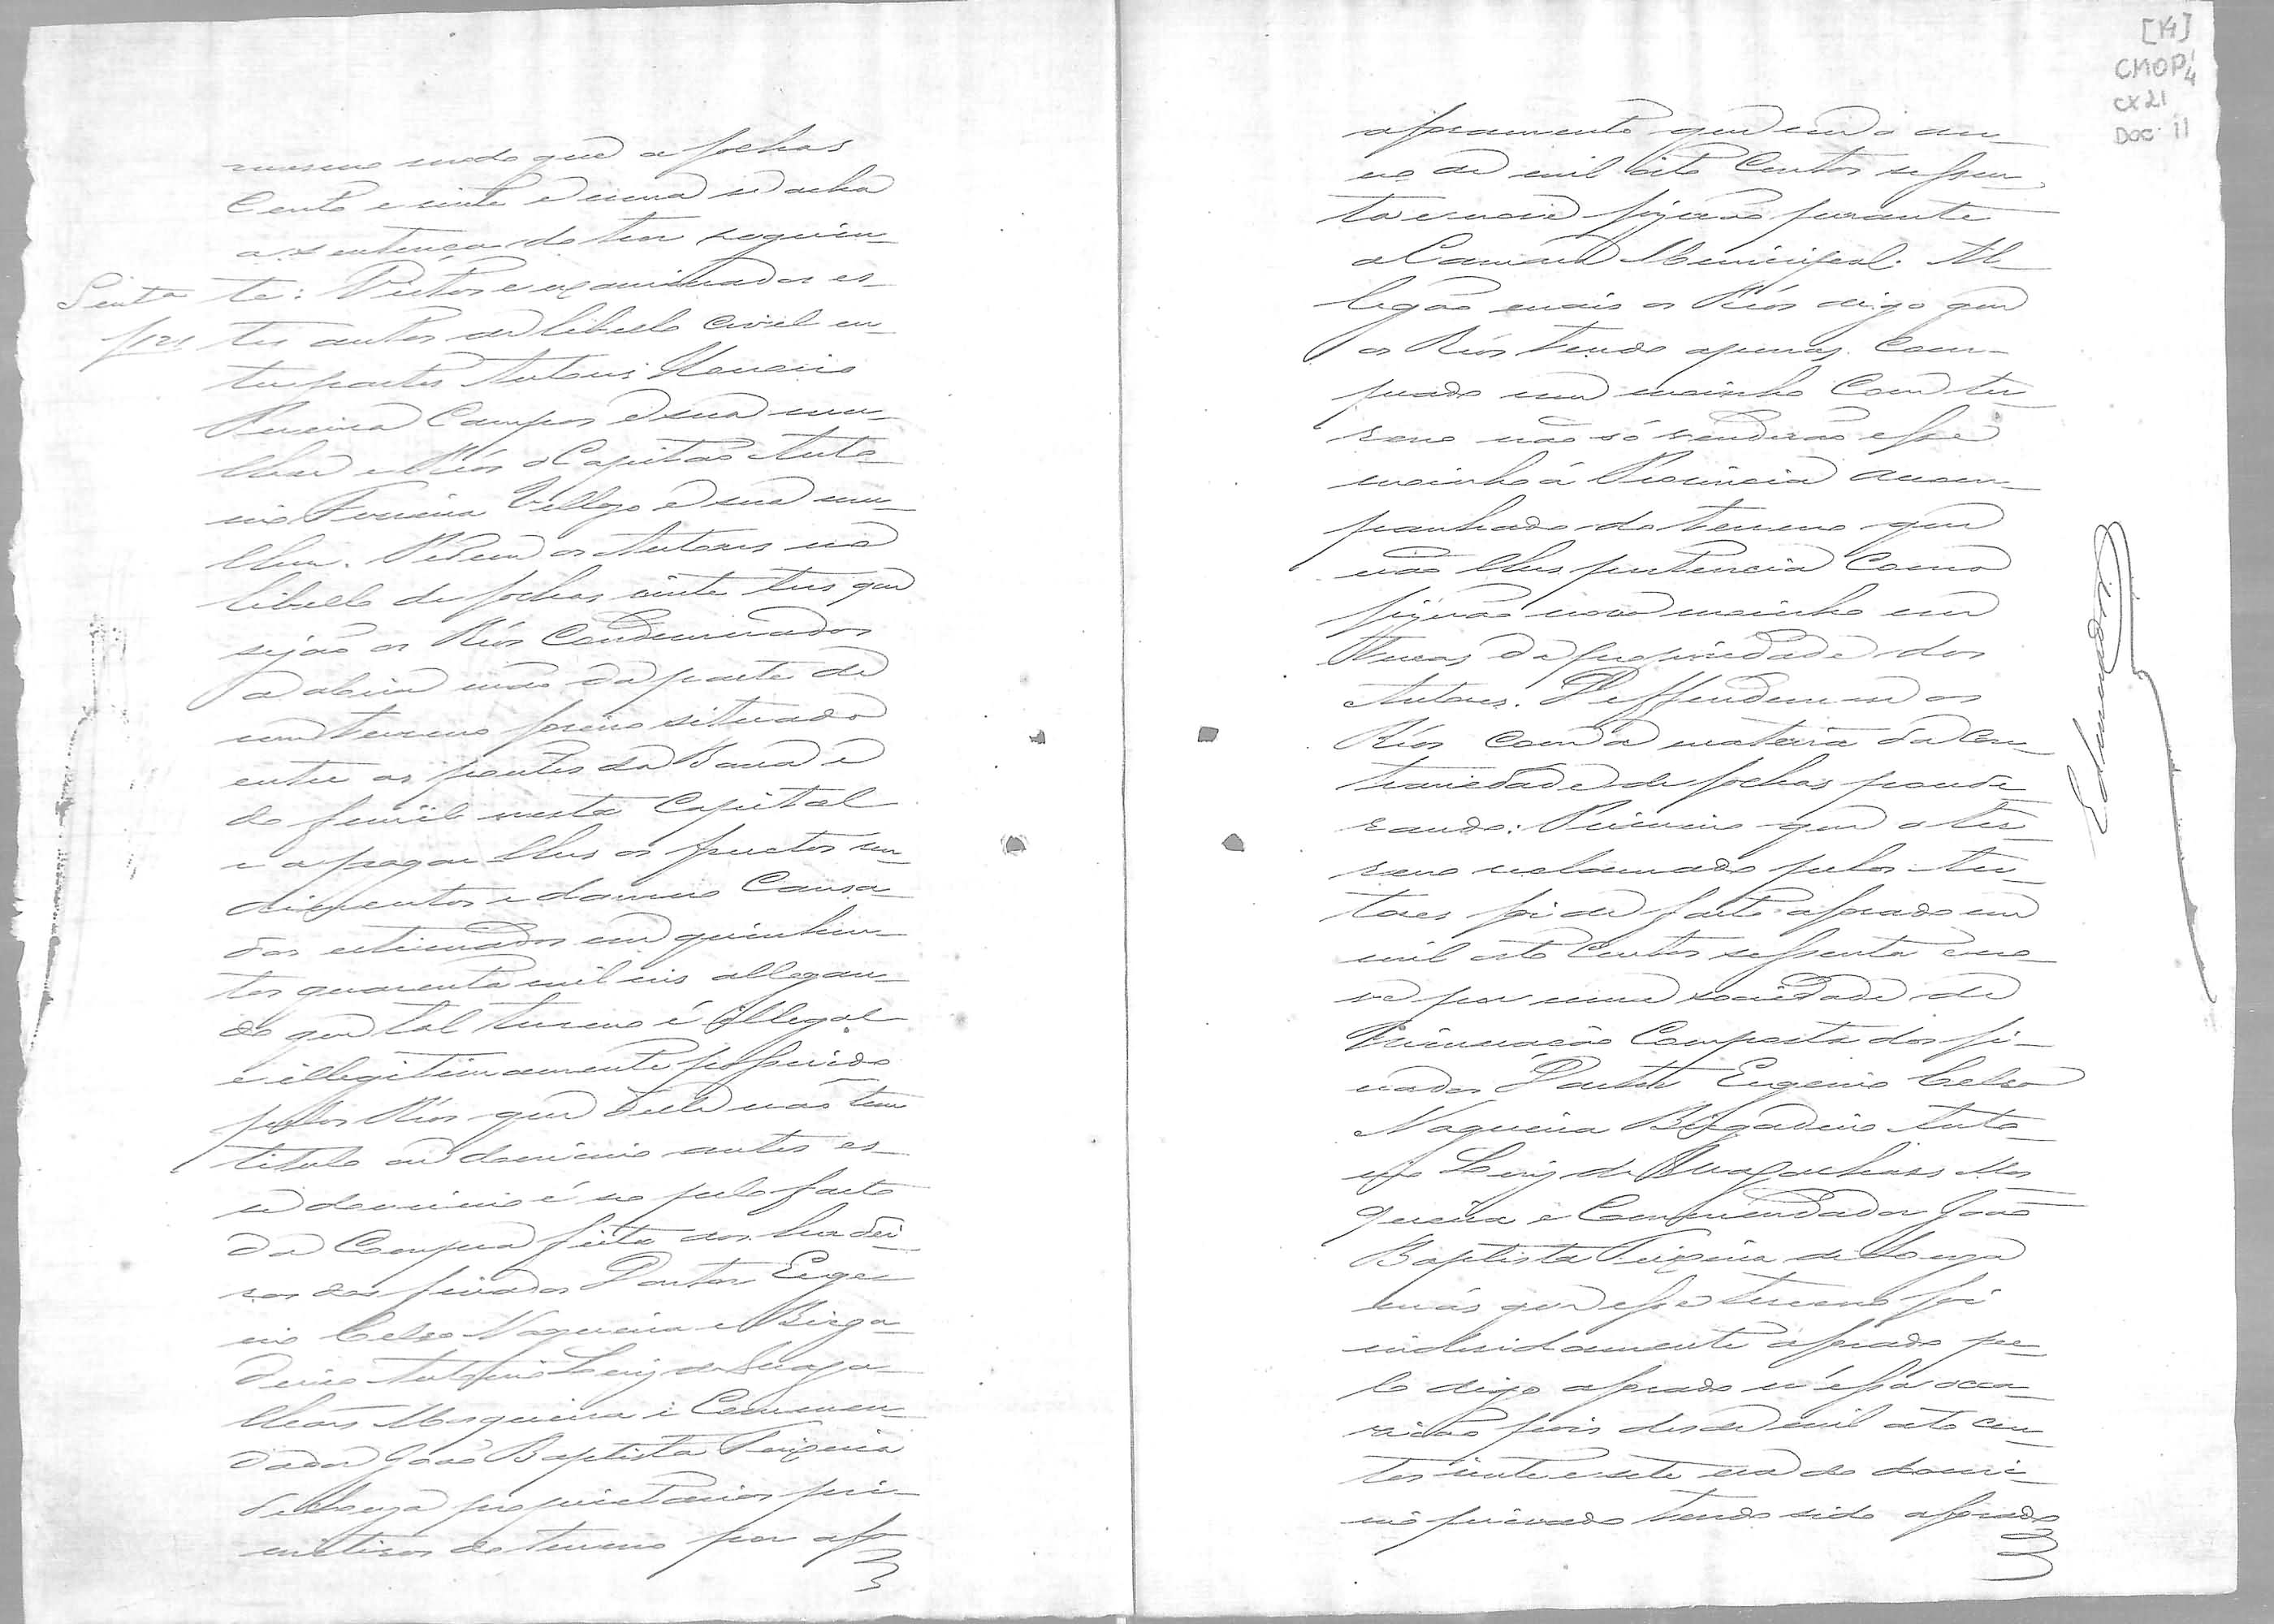 mesmo modo que a folhas
Cento e vinte e uma se acha
a sentença do teor seguin-
Sentᵃ
te: Vistos e examinados es-
f 121
tes autos de libello civel en-
tre partes Autores
Pereira Campos e sua mu-
lher e Réos o Capitão Anto-
nio Ferreira Vellozo e sua mu-
lher. Pedem os Autores no
libello de folhas vinte tres que
sejão os Réos Condemnados
a abrir mão da parte de
um terreno foreiro situado
entre as pontes da Barra e
do funil nesta Capital
e a pagar lhes os fructos ren-
dimentos e damno Causa-
dos estimados em quinhen-
tos quarenta mil reis allegan-
do que tal terreno é illegal
e illegitimamente possuido
pelos Réos que delle não tem
titulo ou dominio antes es-
se dominio é seo pelo facto
da Compra feita aos herdei-
ros dos finados Doutor Euge-
nio Celso Nogueira e Briga-
deiro Antonio Luiz de Maga-
lhães Musqueira e Commen-
dador João Baptista Teixeira
de Souza proprietarios pri-
mitivos do terreno por af
[14]
CMOP 1/4
CX 21
DOC. 11
aforamento que em o an-
no de mil oito Centos sessen-
ta e nove fizerão perante
a Camara Municipal. Al-
legão mais os Réos digo que
os Réos tendo apenas Com-
prado um moinho Com ter-
reno não só venderão esse
moinho á Provincia acom-
panhado do terreno que
não lhes pertencia Como
fizerão novo moinho em
terras da propriedade dos
Autores. Deffendem se os
Réos com a materia da Con-
trariedade de folhas ponde
rando: Primeiro que o ter-
reno reclamado pelos Au-
tores foi de facto aforado em
mil oito Centos sessenta e no-
ve por uma sociedade de
mineração Composta dos fi-
nados Doutor Eugenio Celso
Nogueira Brigadeiro Anto-
nio Luiz de Magalhães Mos
queira e Commendador João
Baptista Teixeira de Souza
más que esse terreno foi
indevidamente aforado pe-
lo digo aforado n'essa occa-
sião pois desde mil oito cen-
tos vinte e sete era do domi-
nio privado tendo sido aforado
Edmundo